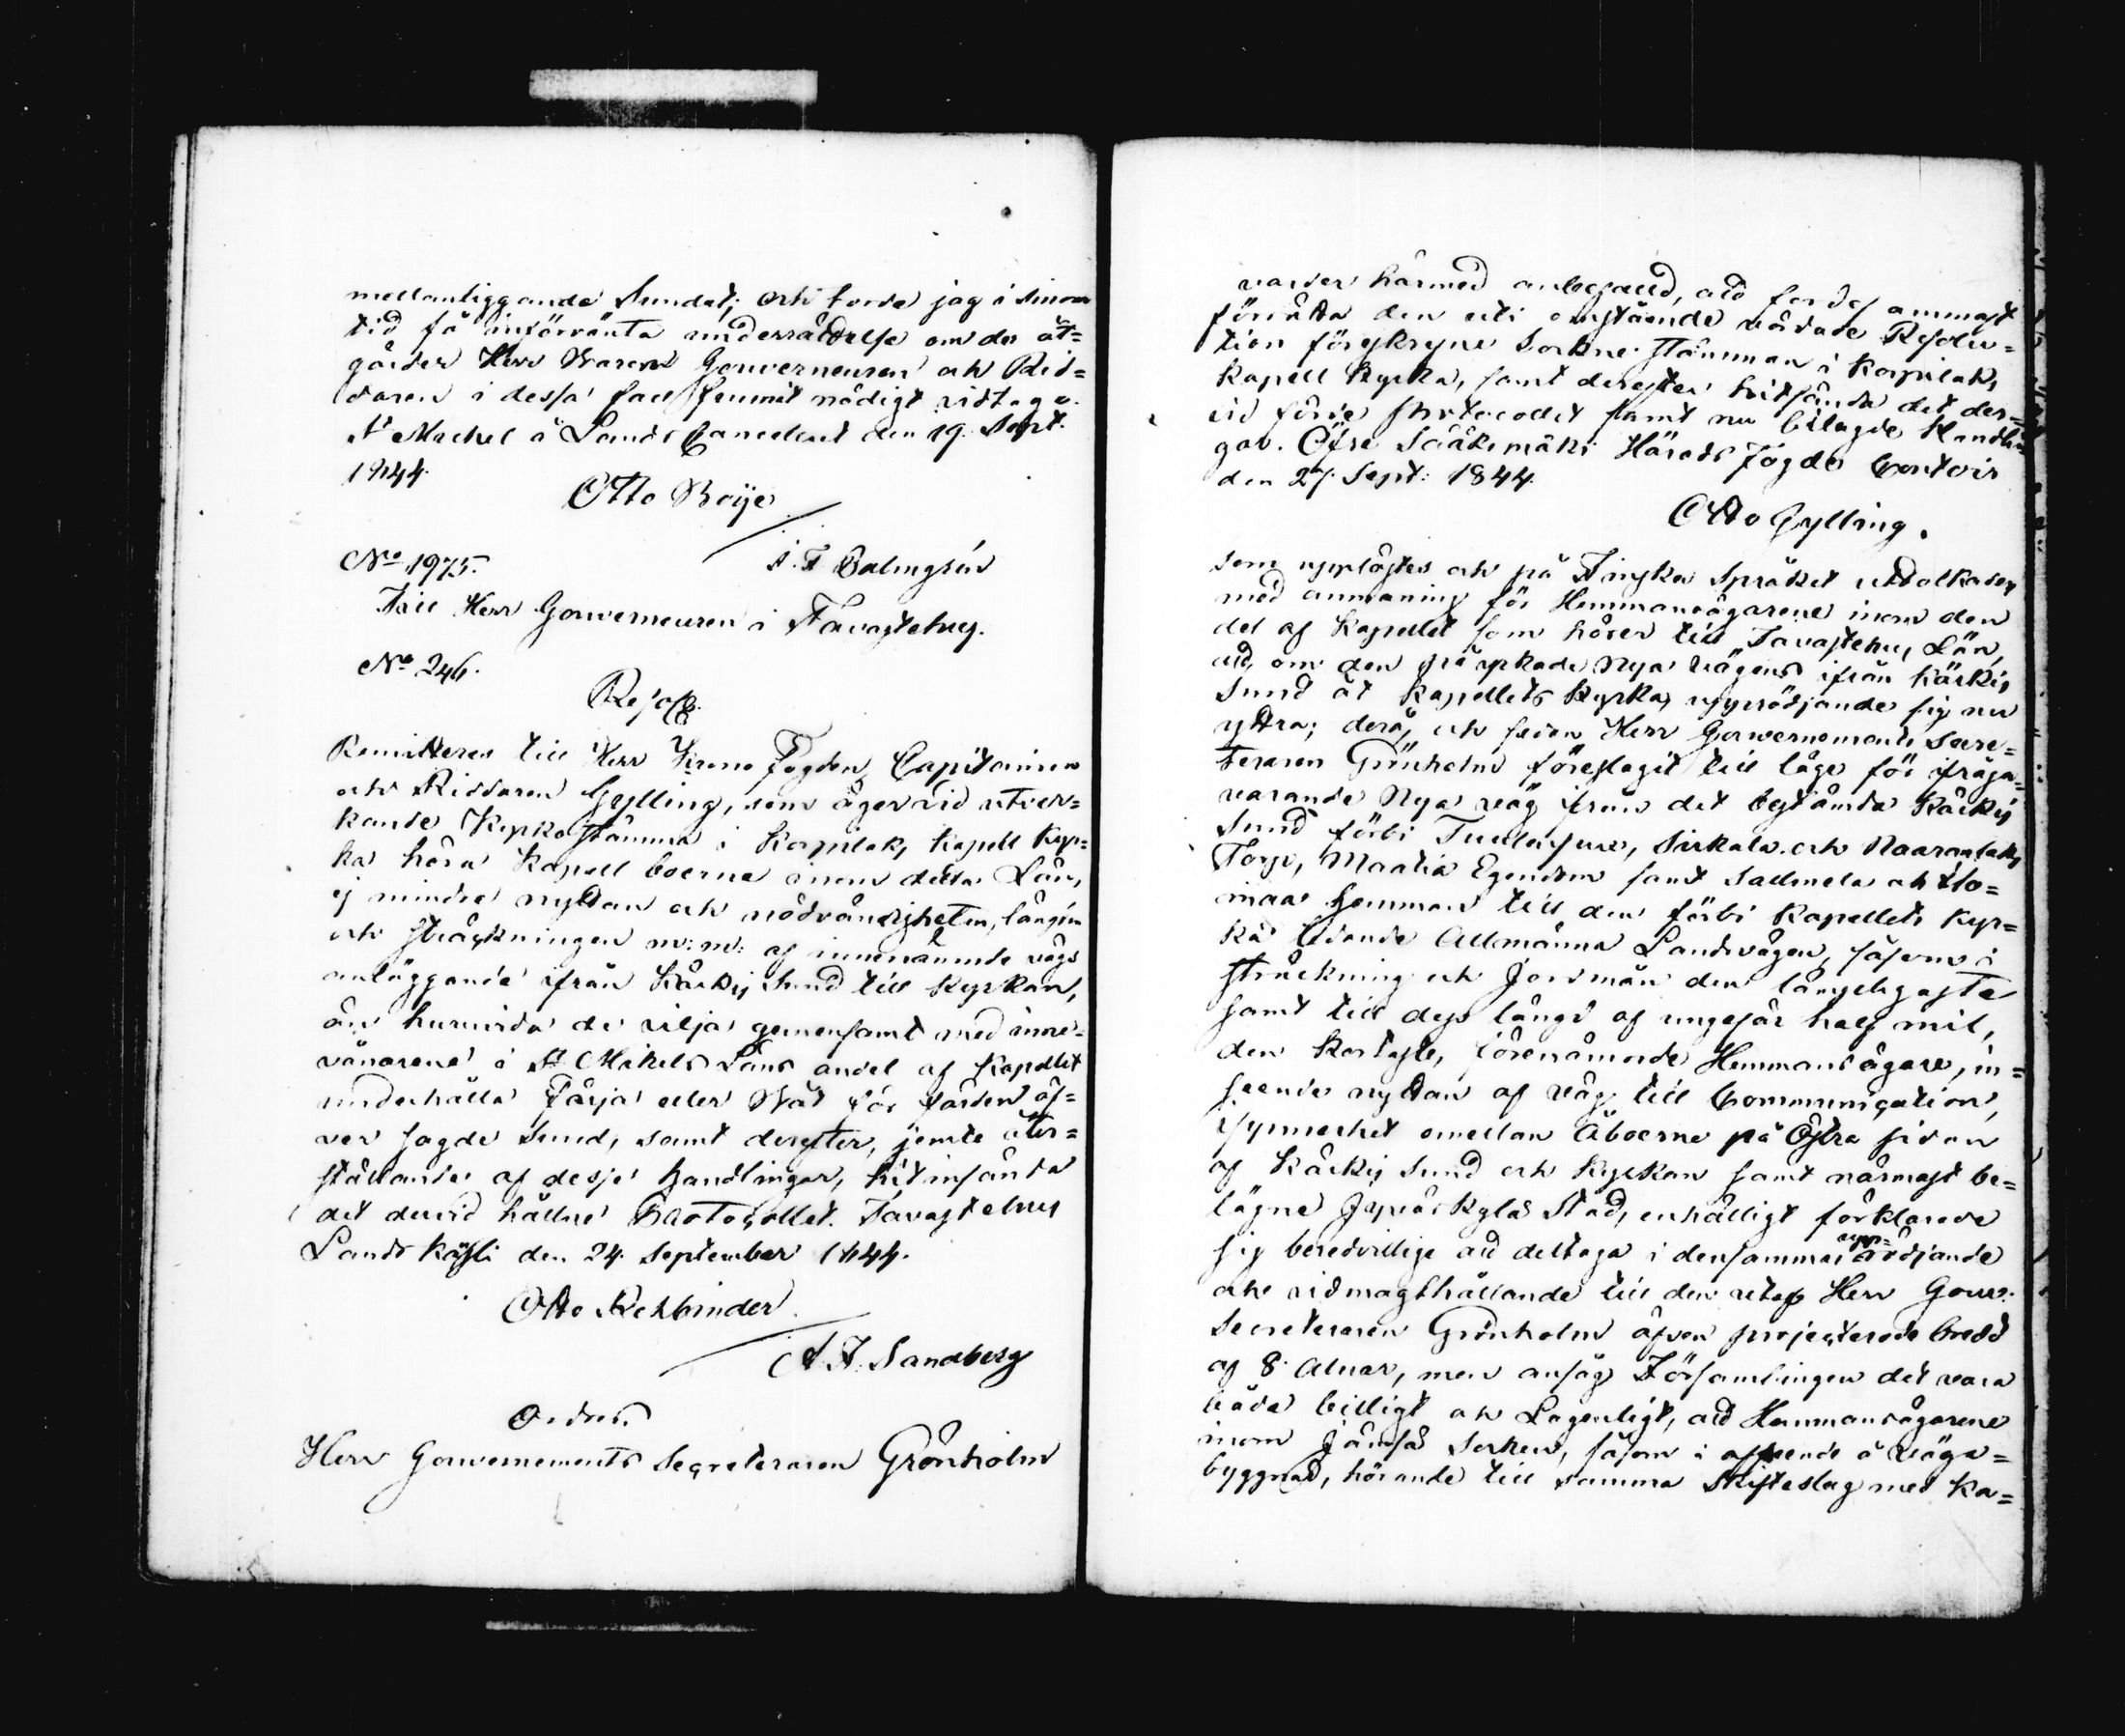 mellanliggande Sundet; och torde jag i sinom
tid få införvänta underrättelse om de åt=
gärder Herr Baron Gouverneuren och Rid=
daren i dessa fall funnit nödigt vidtaga.
St Michel å Lands Cancelliet den 19. Sept.
1844.
Otto Boije
No 1975.
Till Herr Gouverneuren i Tavastehus.
No 246.
Resol.
Remitteras till Herr Krono Fogden, Capitainen
och Riddaren Gylling, som äger vid utver=
kande Kyrkostämma i Korpilaks Kapell Kyr=
ka höra Kapell boerne inom detta Län,
ej mindre nyttan och nödvändigheten, längden
och sträckningen m: m: af innenämnde vägs
anläggande ifrån Kärkis Sund till Kyrkan,
än huruvida de vilja gemensamt med inne=
vånarene i St Michels Läns andel af Kapellet
underhålla Färja eller Båt för färden öf=
ver sagde Sund, samt derefter, jemte åter=
ställande af desse handlingar, hit insända
det dervid hållne Protocollet. Tavastehus
Lands Kansli den 24. September 1844.
Otto Rehbinder.
A. F. Sandberg
Ordres.
Herr Gouvernements Secreteraren Grönholm
varder härmed anbefalld, att fordersammast
förrätta den uti omstående vördade Resolu=
tion föreskrefne Sockne-stämman i Korpilaks
Kapell Kyrka, samt derefter hitsända det der=
vid förde Protocollet samt nu bilagde Handlin
gar. Öfre Sääksmäki Härads Fögde Contoir
den 27. Sept: 1844.
Otto Gylling.
som upplästes och på Finska Språket uttolkades
med anmaning för Hemmansägarene inom den
del af Kapellet som hörer till Tavastehus Län,
att, om den påyrkade Nya vägens ifrån Kärkis
Sund åt Kapellets Kyrka, upprödjande sig nu
yttra; derå, och sedan Herr Gouvernements Secre=
teraren Grönholm föreslagit till läge för ifråga=
varande Nya väg ifrån det bestämda Kärkis
Sund förbi Sirkala och Naaranlaks
Torp, Maatia Egendom samt Sallmela och
maa hemman till den förbi Kapellets Kyr=
ka ledande Allmänna Landsvägen, såsom i
sträckning och Jordmån den lämpeligaste
samt till dess längd af ungefär half mil,
den kortaste, förenämnde Hemmansägare, in=
seende nyttan af väg till Communication,
i synnerhet emellan Åboerne på Östra sidan
af Kärkis Sund och Kyrkan samt närmast be=
lägne Jyväskylä Stad, enhälligt förklarade
sig beredvillige att deltaga i densammas upp=rödjande
och vidmagthållande till den utaf Herr Gouv:
Secreteraren Grönholm äfven projecterade bredd
af 8. Alnar, men ansåg Församlingen det vara
både billigt och Lagenligt, att Hemmansägarene
inom Jämsä Socken, såsom i afseende å väga=
byggnad, hörande till samma Skifteslag med Ka=